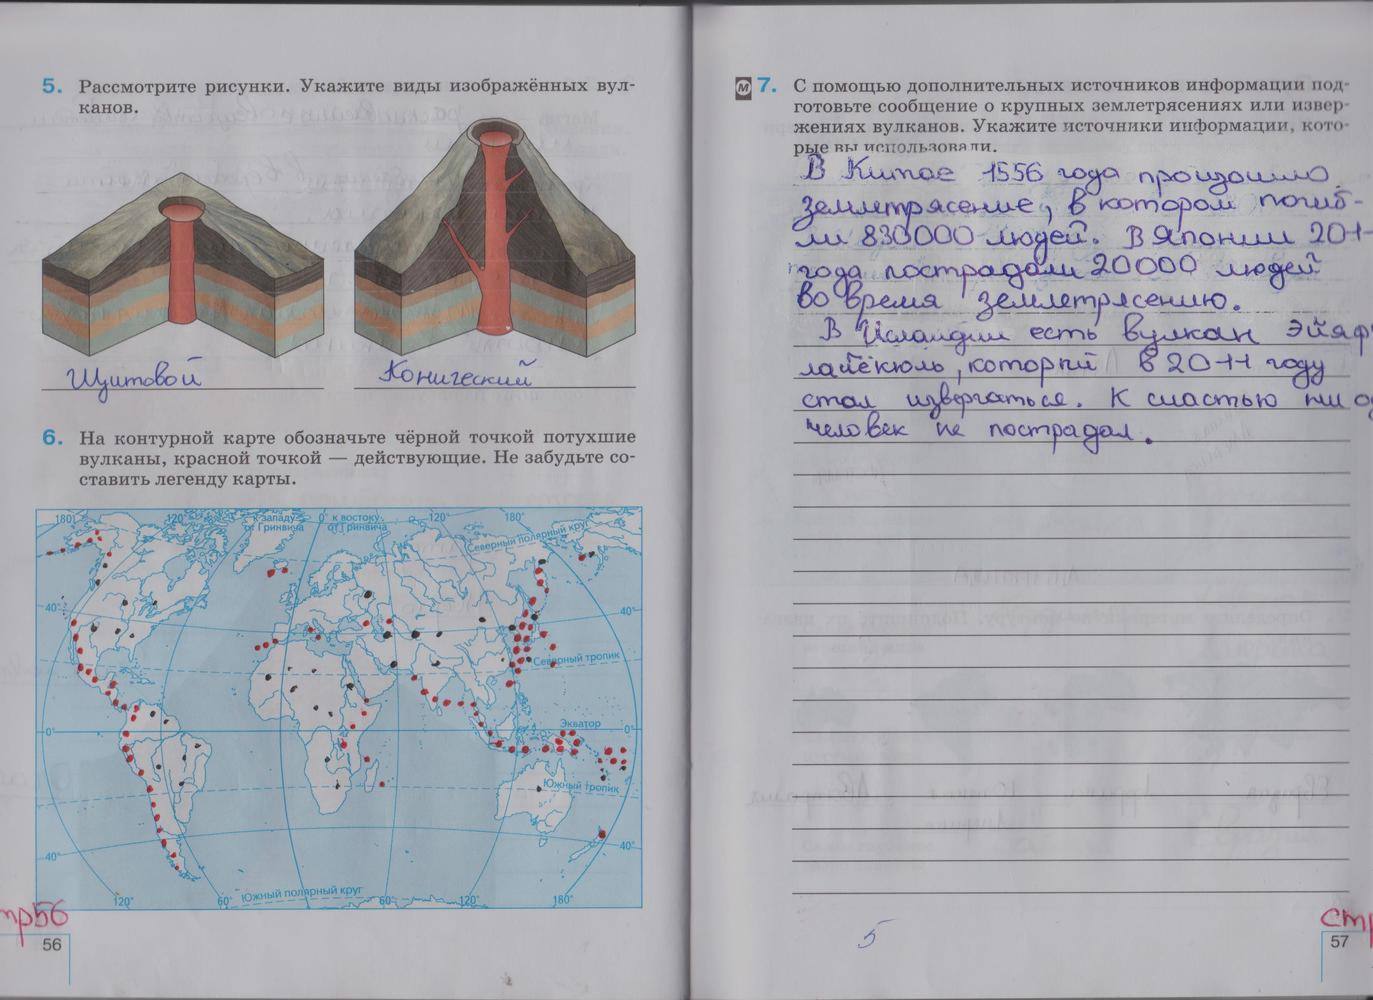 5. Рассмотрите рисунки. Укажите виды изображённых вул-
канов.
Щитовой
Конический
6. На контурной карте обозначьте чёрной точкой потухшие
вулканы, красной точкой — действующие. Не забудьте со-
ставить легенду карты.
180°
120°
к западу
от Гринвича
0°
к востоку
от Гринвича
120°
180°
Северный полярный круг
40°
40°
Северный тропик
Экватор
0°
0°
Южный тропик
40°
40°
Южный полярный круг
120°
60°
60°
120°
180°
стр56
56
М 7. С помощью дополнительных источников информации под-
готовьте сообщение о крупных землетрясениях или извер-
жениях вулканов. Укажите источники информации, кото-
рые вы использовали.
В Китае 1556 года произошло
землетрясение, в котором погиб-
ли 830000 людей. В Японии 2011
года пострадали 20000 людей
во время землетрясению.
В Исландии есть вулкан Эйяф
лайёкюль, который в 2011 году
стал извергаться. К счастью ни од
человек не пострадал.
5
стр
57